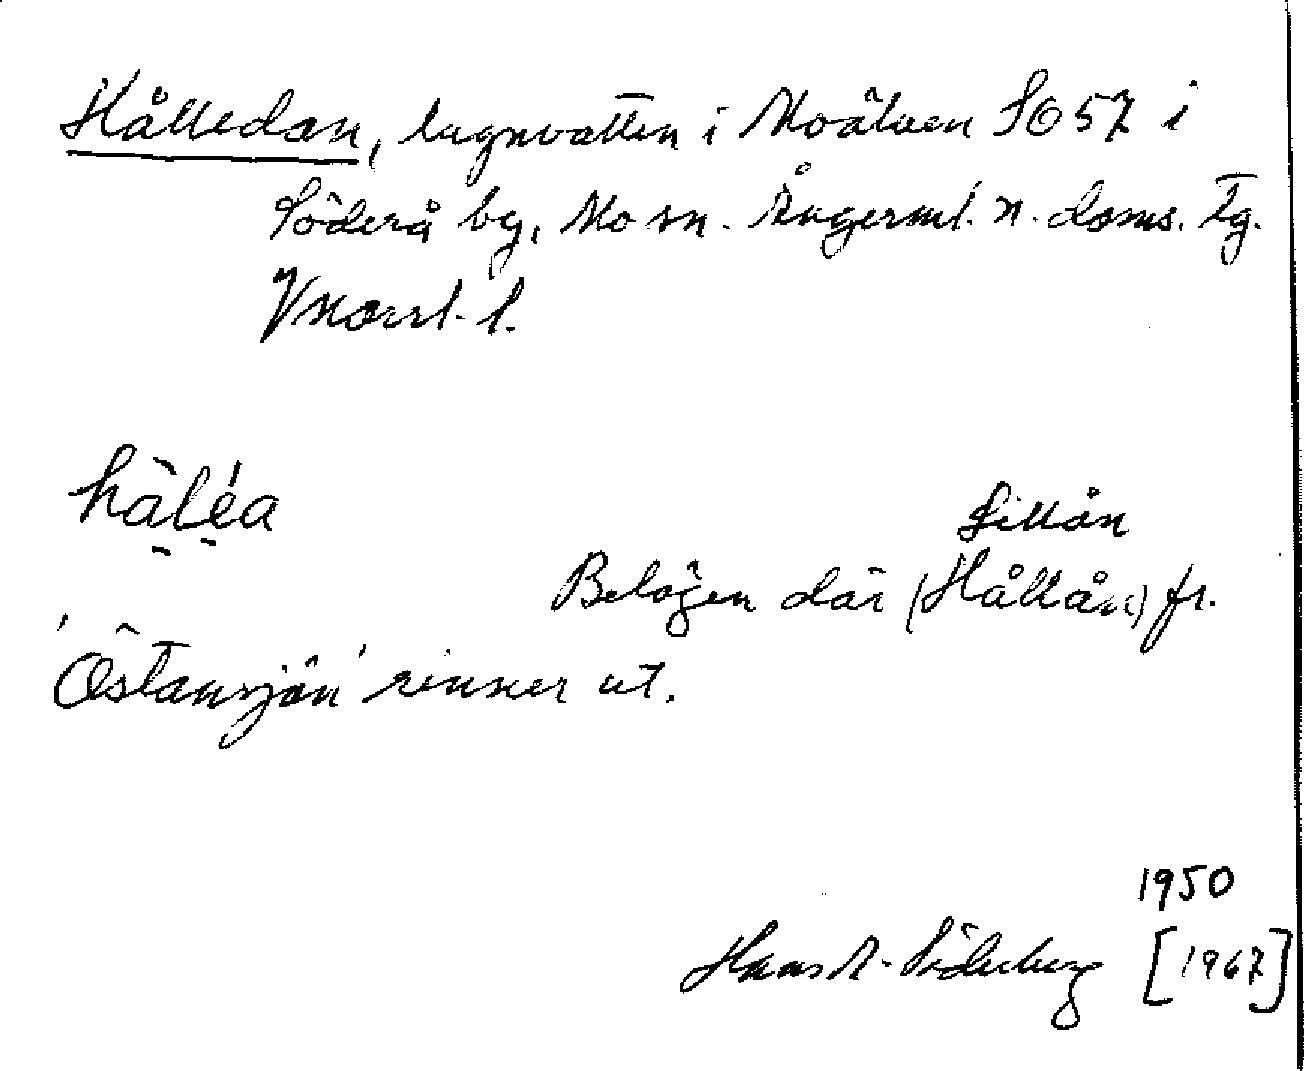 Hålledan, lugnvatten i Moälven SO 57 i
Söderå by, Mo sn. Ångerml. n. doms. Tg.
Vnorrl. l.
Lillån
Belägen där (Hållån) fr.
'Östansjön' rinner ut.
1950
Hans A. Söderberg [1967]